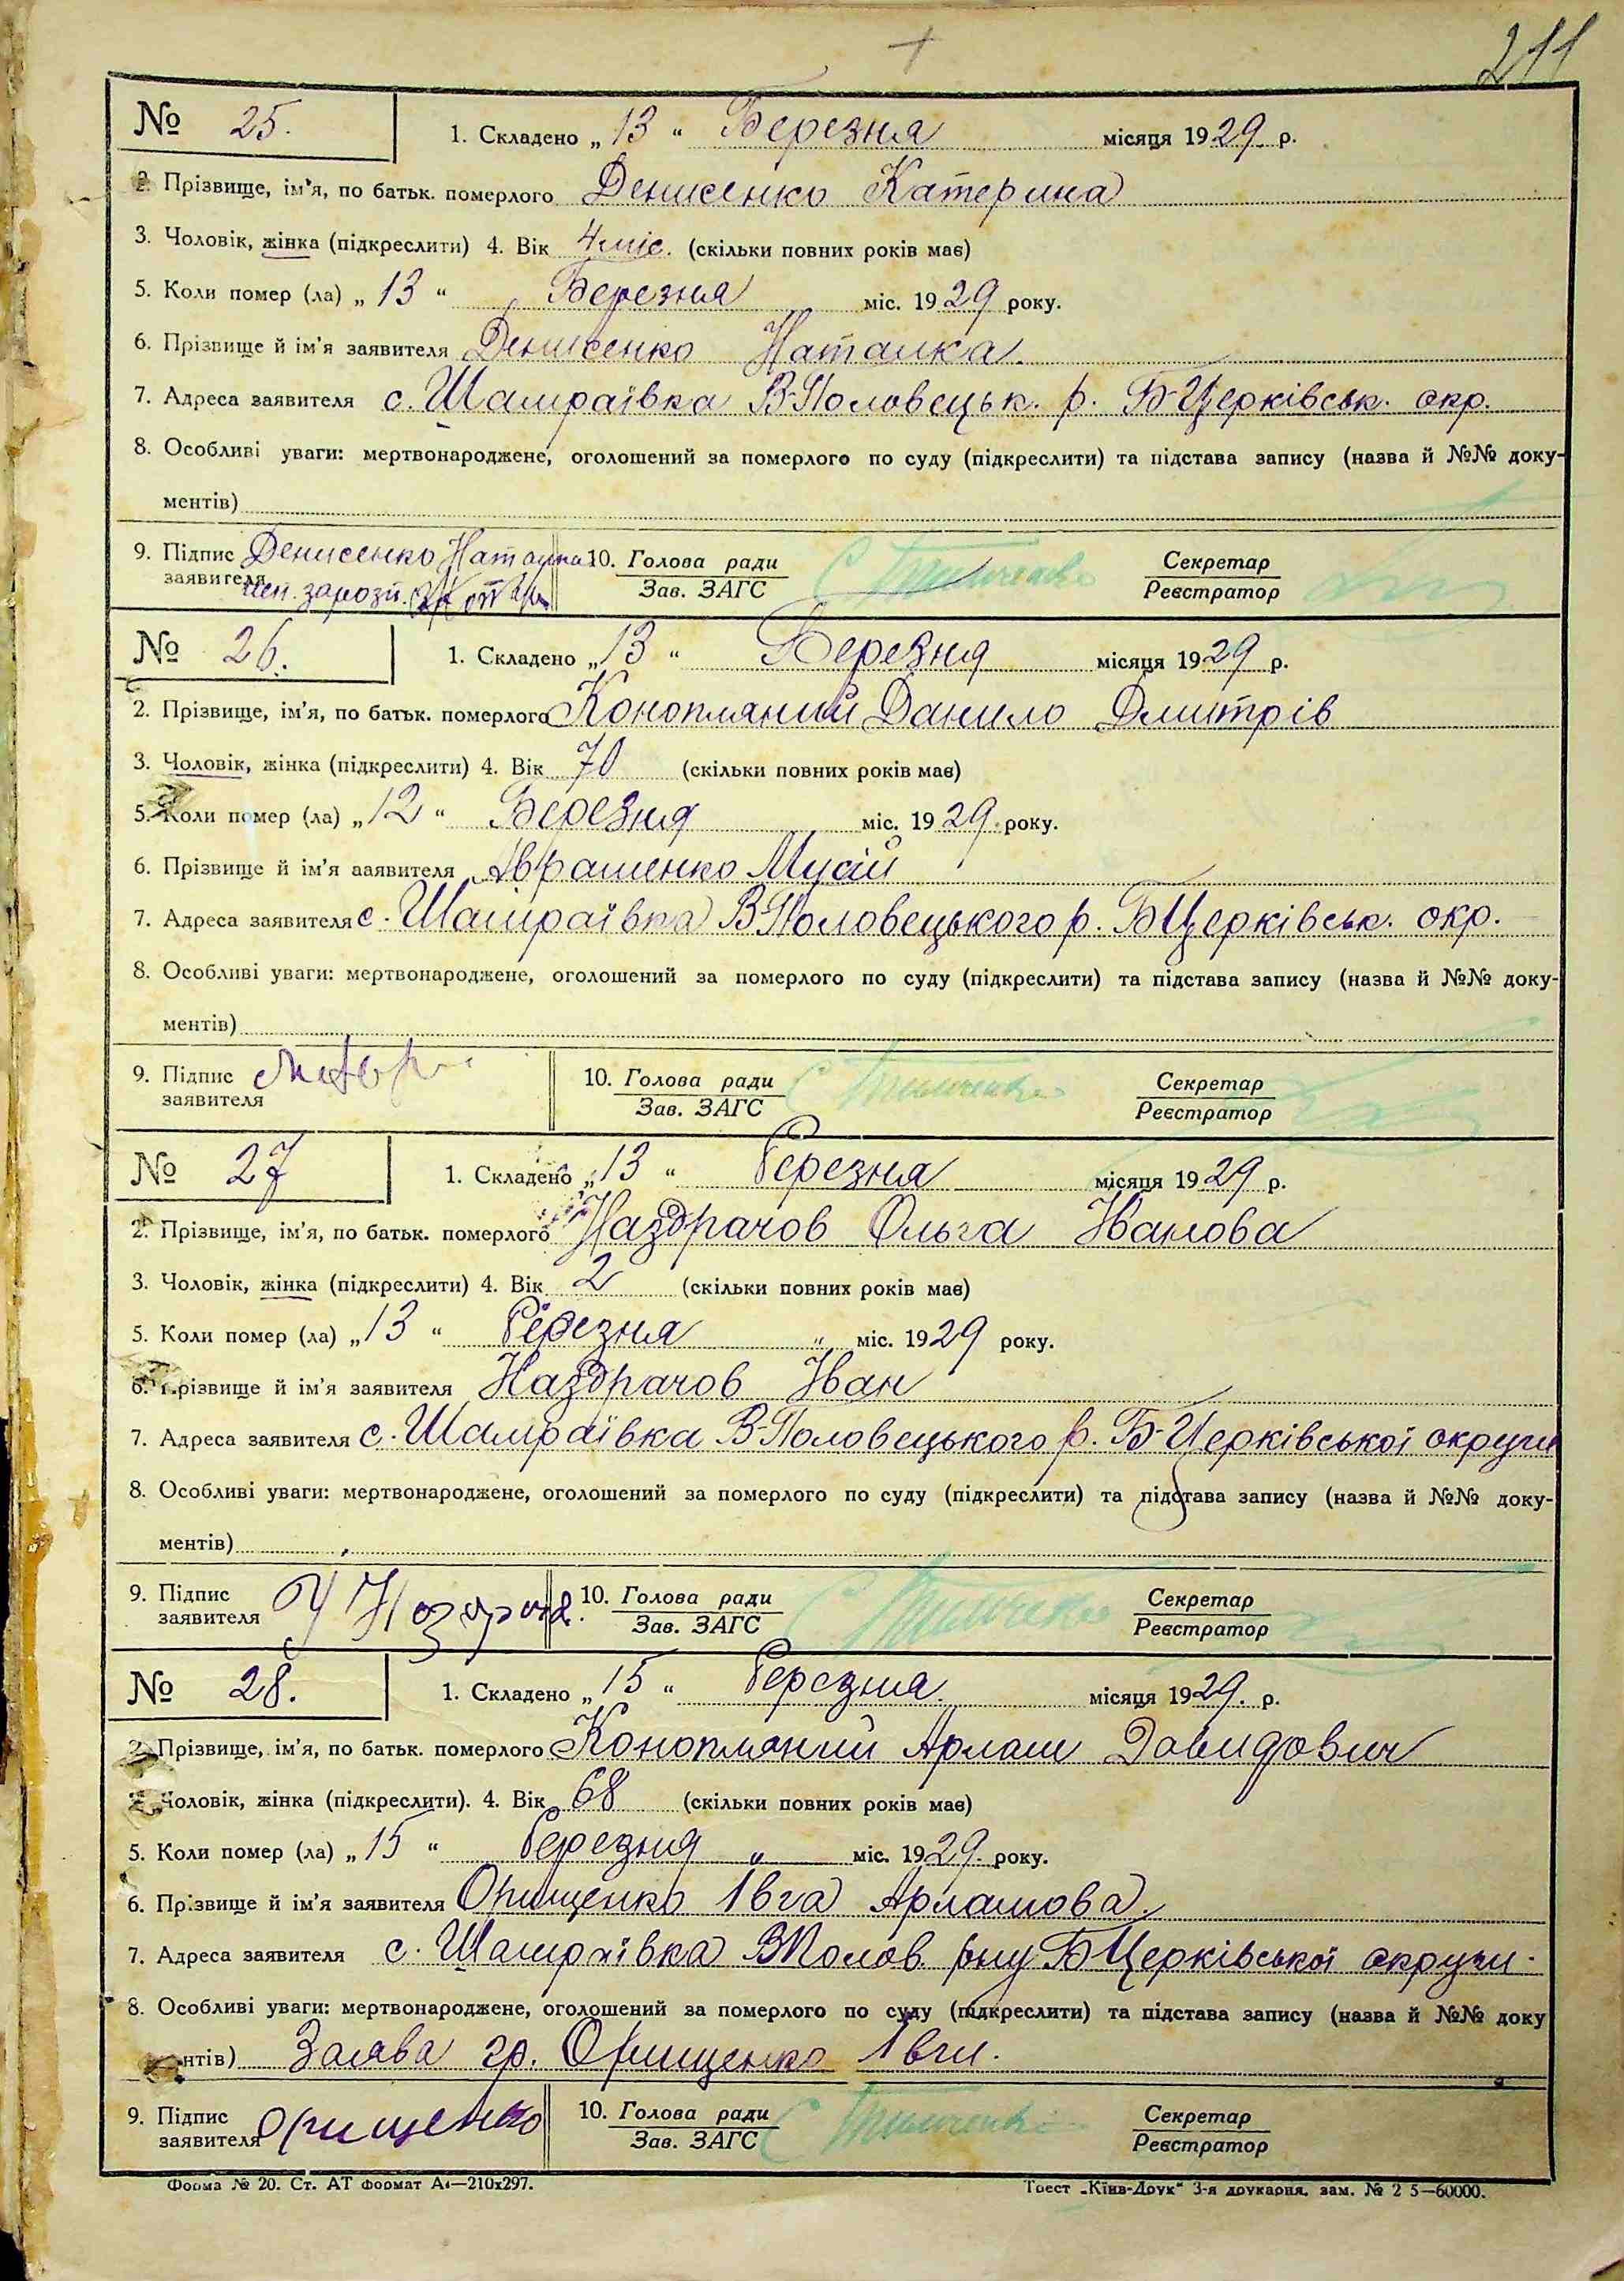 211
№ 25. 1. Складено „13“ Березня місяця 1929 р.
2. Прізвище, ім’я, по батьк. померлого Денисенко Катерина
3. Чоловік, жінка (підкреслити) 4. Вік 4 міс. (скільки повних років має)
5. Коли помер (ла) „13“ Березня міс. 1929 року.
6. Прізвище й ім’я заявителя Денисенко Наталка.
7. Адреса заявителя с. Шамраївка В-Половецьк. р. Б-Церківськ. окр.
8. Особливі уваги: мертвонароджене, оголошений за померлого по суду (підкреслити) та підстава запису (назва й №№ доку-
ментів)
9. Підпис заявителя Денисенко Наталка 10. Голова ради Секретар
Зав. ЗАГС Реєстратор
№ 26. 1. Складено „13“ Березня місяця 1929 р.
2. Прізвище, ім’я, по батьк. померлого Конопляний Данило Дмитрів
3. Чоловік, жінка (підкреслити) 4. Вік 70 (скільки повних років має)
5. Коли помер (ла) „12“ Березня міс. 1929 року.
6. Прізвище й ім’я заявителя Авраменко Мусій
7. Адреса заявителя с. Шамраївка В-Половецького р. БЦерківськ. окр.
8. Особливі уваги: мертвонароджене, оголошений за померлого по суду (підкреслити) та підстава запису (назва й №№ доку-
ментів)
9. Підпис заявителя 10. Голова ради Секретар
Зав. ЗАГС Реєстратор
№ 27 1. Складено „13“ Березня місяця 1929 р.
2. Прізвище, ім’я, по батьк. померлого Наздрачов Ольга Іванова
3. Чоловік, жінка (підкреслити) 4. Вік 2 (скільки повних років має)
5. Коли помер (ла) „13“ Березня „ міс. 1929 року.
6. Прізвище й ім’я заявителя Наздрачов Іван
7. Адреса заявителя с. Шамраївка В-Половецького р. Б-Церківської округи
8. Особливі уваги: мертвонароджене, оголошений за померлого по суду (підкреслити) та підстава запису (назва й №№ доку-
ментів)
9. Підпис заявителя 10. Голова ради Секретар
Зав. ЗАГС Реєстратор
№ 28. 1. Складено „15“ Березня. місяця 1929. р.
2. Прізвище, ім’я, по батьк. померлого Конопляний Арлам Давидович
Чоловік, жінка (підкреслити). 4. Вік 68 (скільки повних років має)
5. Коли помер (ла) „15“ Березня „ міс. 1929. року.
6. Прізвище й ім’я заявителя Орищенко Івга Арламова.
7. Адреса заявителя с. Шамраївка ВПолов. рну БЦерківської округи.
8. Особливі уваги: мертвонароджене, оголошений за померлого по суду (підкреслити) та підстава запису (назва й №№ доку
нтів) Заява гр. Орищенко Івги.
9. Підпис заявителя Орищенко 10. Голова ради Секретар
Зав. ЗАГС Реєстратор
Форма № 20. Ст. АТ Формат А4—210х297. Трест „Київ-Друк“ 3-я друкарня, зам. № 2 5—60000.